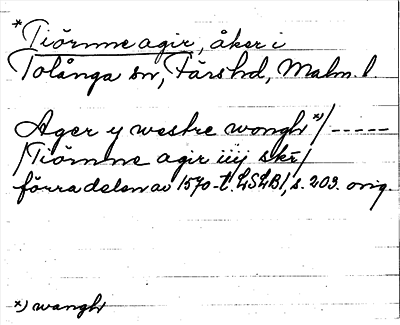 *Tiörnne agir, åker i
Tolånga sn, Färs hd, Malm. l
Ager y westre wongh x)/-----
/Tiörnne agir iiij skr/
förra delen av 1570-t. LSLB1, s. 203. orig.
x) wangh